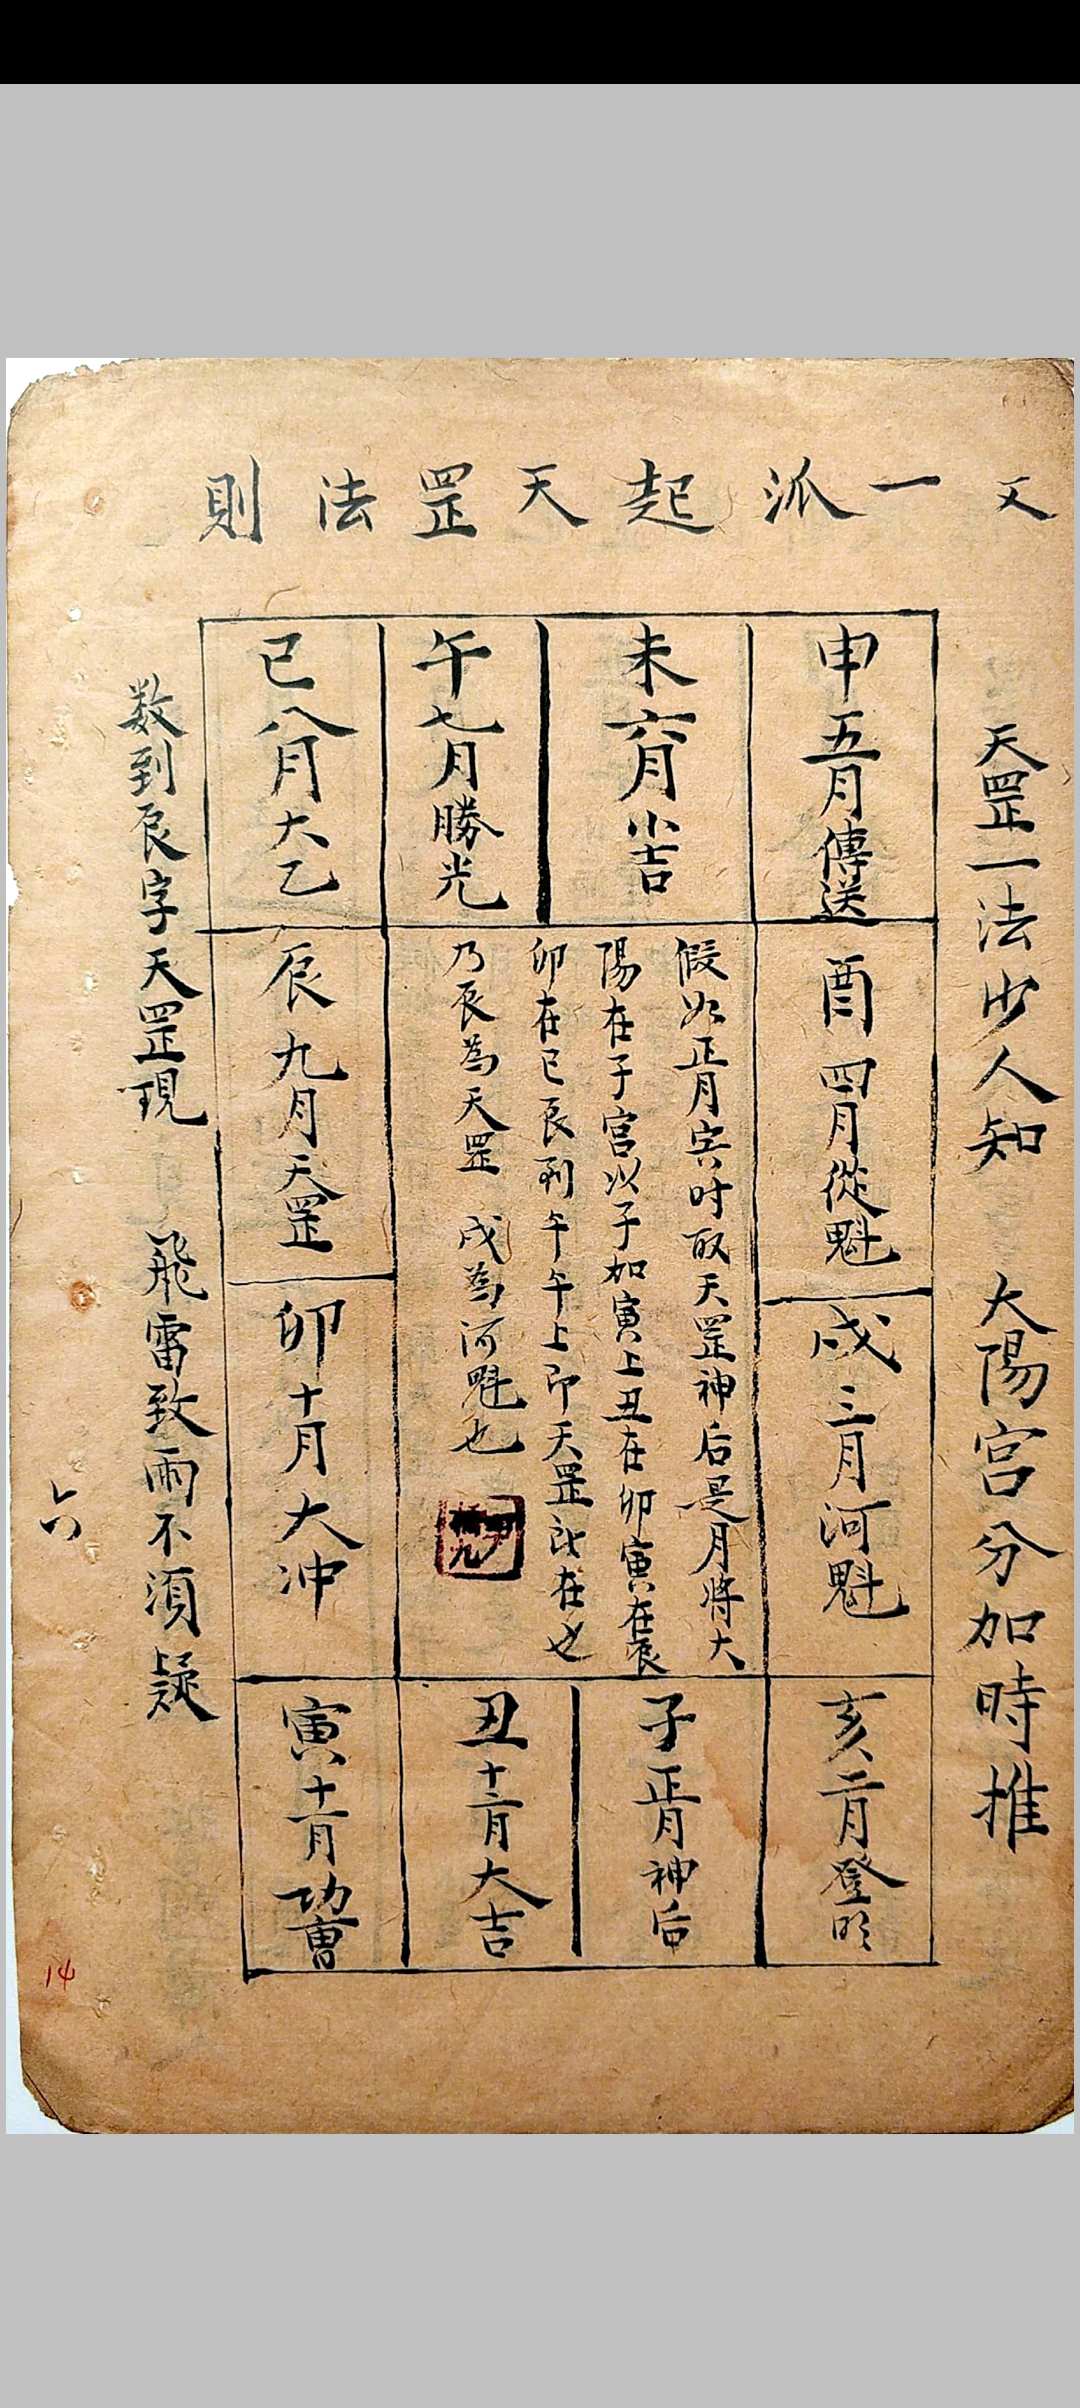 又一派起天罡法則
天罡一法少人知 大陽宮分加時推
申五月傳送
未六月小吉
午七月勝光
巳八月大乙
酉四月從魁
戌三月河魁
假如正月寅时取天罡神后是月將大
陽在子宮以子加寅上丑在卯寅在辰
卯在巳辰到午午上即天罡所在也
乃辰為天罡 戌為河魁也
辰九月天罡
卯十月大冲
亥二月登明
子正月神后
丑十二月大吉
寅十一月功曹
数到辰字天罡現 飛雷致雨不須疑
六
14